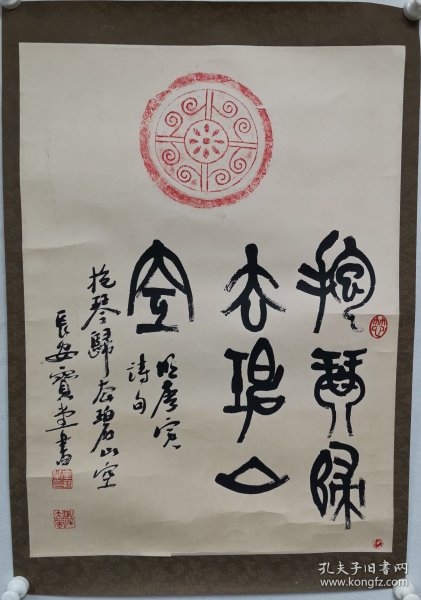 抱琴歸
去碧山
空
明唐寅
詩句
抱琴歸去碧山空
長安寶堂書
孔夫子旧书网
www.kongfz.com